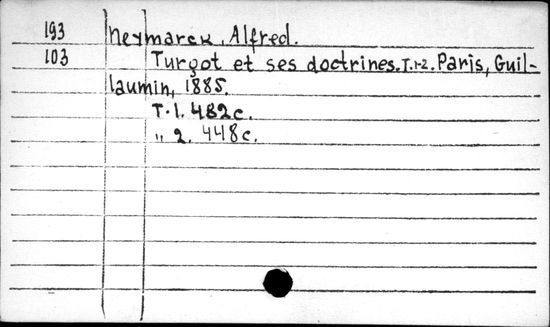 193 Neymarck, Alfred.
103 Turgot et ses doctrines. T. 1-2. Paris, Guil-
laumin, 1885.
T. 1. 482 c.
" 2. 448 c.